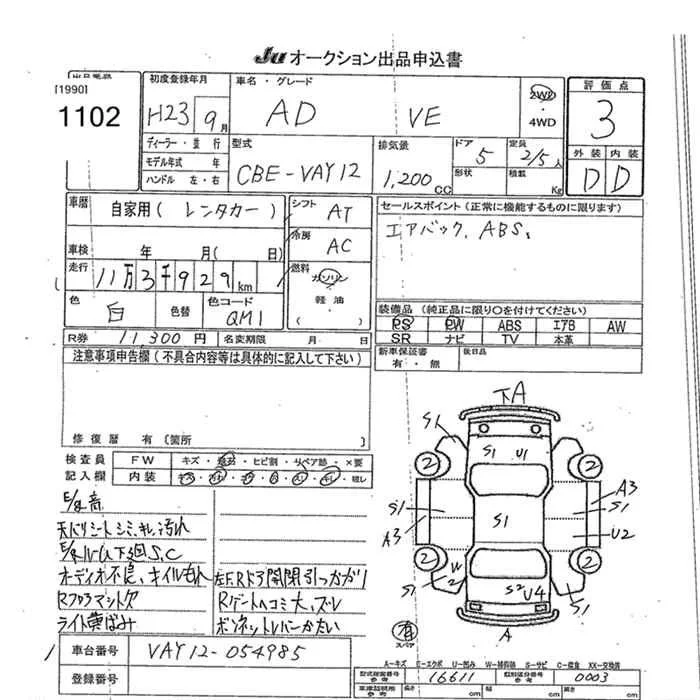 Ju オークション出品申込書
出品番号
[1990]
1102
初度登録年月
H23 9月
ディーラー・並行
モデル年式 年
ハンドル 左・右
車名・グレード
AD VE
2WD
4WD
評価点
3
外装 内装
D D
型式
CBE-VAY12
排気量
1,200cc
ドア 5
形状
定員 2/5人
積載 Kg
車歴
自家用( レンタカー )
車検 年 月( 日)
走行
11万3千929km
色
白
色替
色コード
QM1
シフト
AT
冷房
AC
燃料
ガソリン
軽油
( )
セールスポイント(正常に機能するものに限ります)
エアバック、ABS、
装備品 (純正品に限り○を付けてください)
PS PW ABS エアB AW
SR ナビ TV 本革
新車保証書
有・無
後日品
R券 11,300円 名変期限 月 日
注意事項申告欄(不具合内容等は具体的に記入して下さい)
修復歴 有〔箇所 〕
検査員
記入欄
FW キズ・ ・ヒビ割・リペア跡・×要
内装
E/g音
天バリシートシミ、キレ、汚れ
オーディオ不良、
左F.Rドア開閉引っかかり
ライト黄ばみ
ボンネットレバーかたい
下A
S1
S1 U1
2 2
S1 A3
A3 S1
S1
U2
2 2
W2
S1 S2 U4 S1
A
有
スペア
A-キズ E-エクボ U-凹み W-補修跡 S-サビ C-腐食 XX-交換済
車台番号 VAY12-054985
登録番号
型式指定番号
参考
16611
類別区分番号
参考
0003
長さ cm cm cm